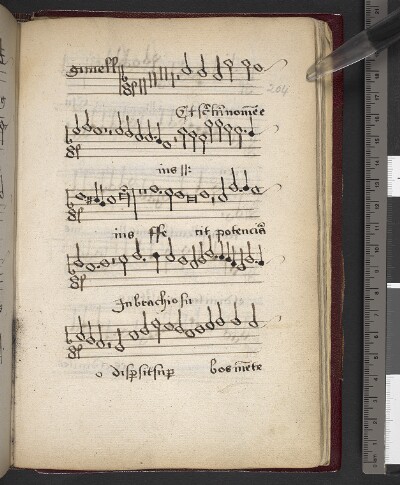 gimell
204
Et sctm nomē e
ius ||:
ius ffe cit potenciā
In brachio su
o disp̄sit sup̄ bos mēte